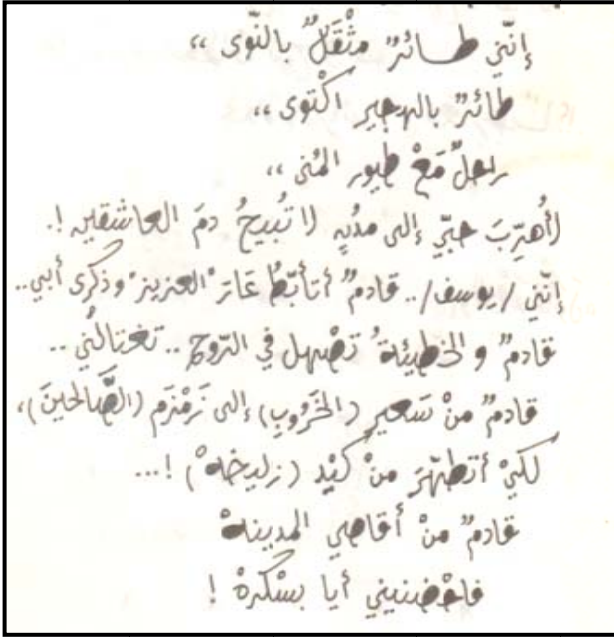 إنّني طائرٌ مثْقَلٌ بالنّوى ،،
طائرٌ بالهجير اكْتوى ،،
راحلٌ مَعْ طيور المُنى ،،
لأُهرِّبَ حبّي إلى مدُنٍ لا تُبيحُ دمَ العاشقين !.
إنّني /يوسف/.. قادمٌ أتأبّطُ عَارَ "العزيز" وذكرى أبي..
قادمٌ و الخطيئةُ تصْهل في الرّوح .. تغتالُني ..
قادمٌ منْ سَعير (الخَرُوبِ) إلى زَمْزَم (الصَّالحينَ)،
لكيْ أتطهّرَ منْ كَيْد (زليخهْ) !...
قادمٌ منْ أقاصي المدينهْ
فاحْضنيني أيا بسْكرهْ !